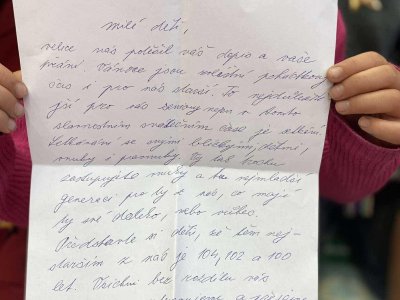 milé děti,
velice nás potěšil váš dopis a vaše
přání. Vánoce jsou zvláštní pohádkový
čas i pro nás starší. To nejdůležitější
je pro nás seniory nejen v tomto
slavnostním svátečním čase je setkání
Setkávání se svými blízkými, dětmi,
vnuky i pravnuky. Vy tak trochu
zastupujete vnuky a tu nejmladší
generaci pro ty z nás, co mají
ty své daleko, nebo vůbec.
Představte si děti, že těm nej-
starším z nás je 104, 102 a 100
let. Všichni bez rozdílu vás